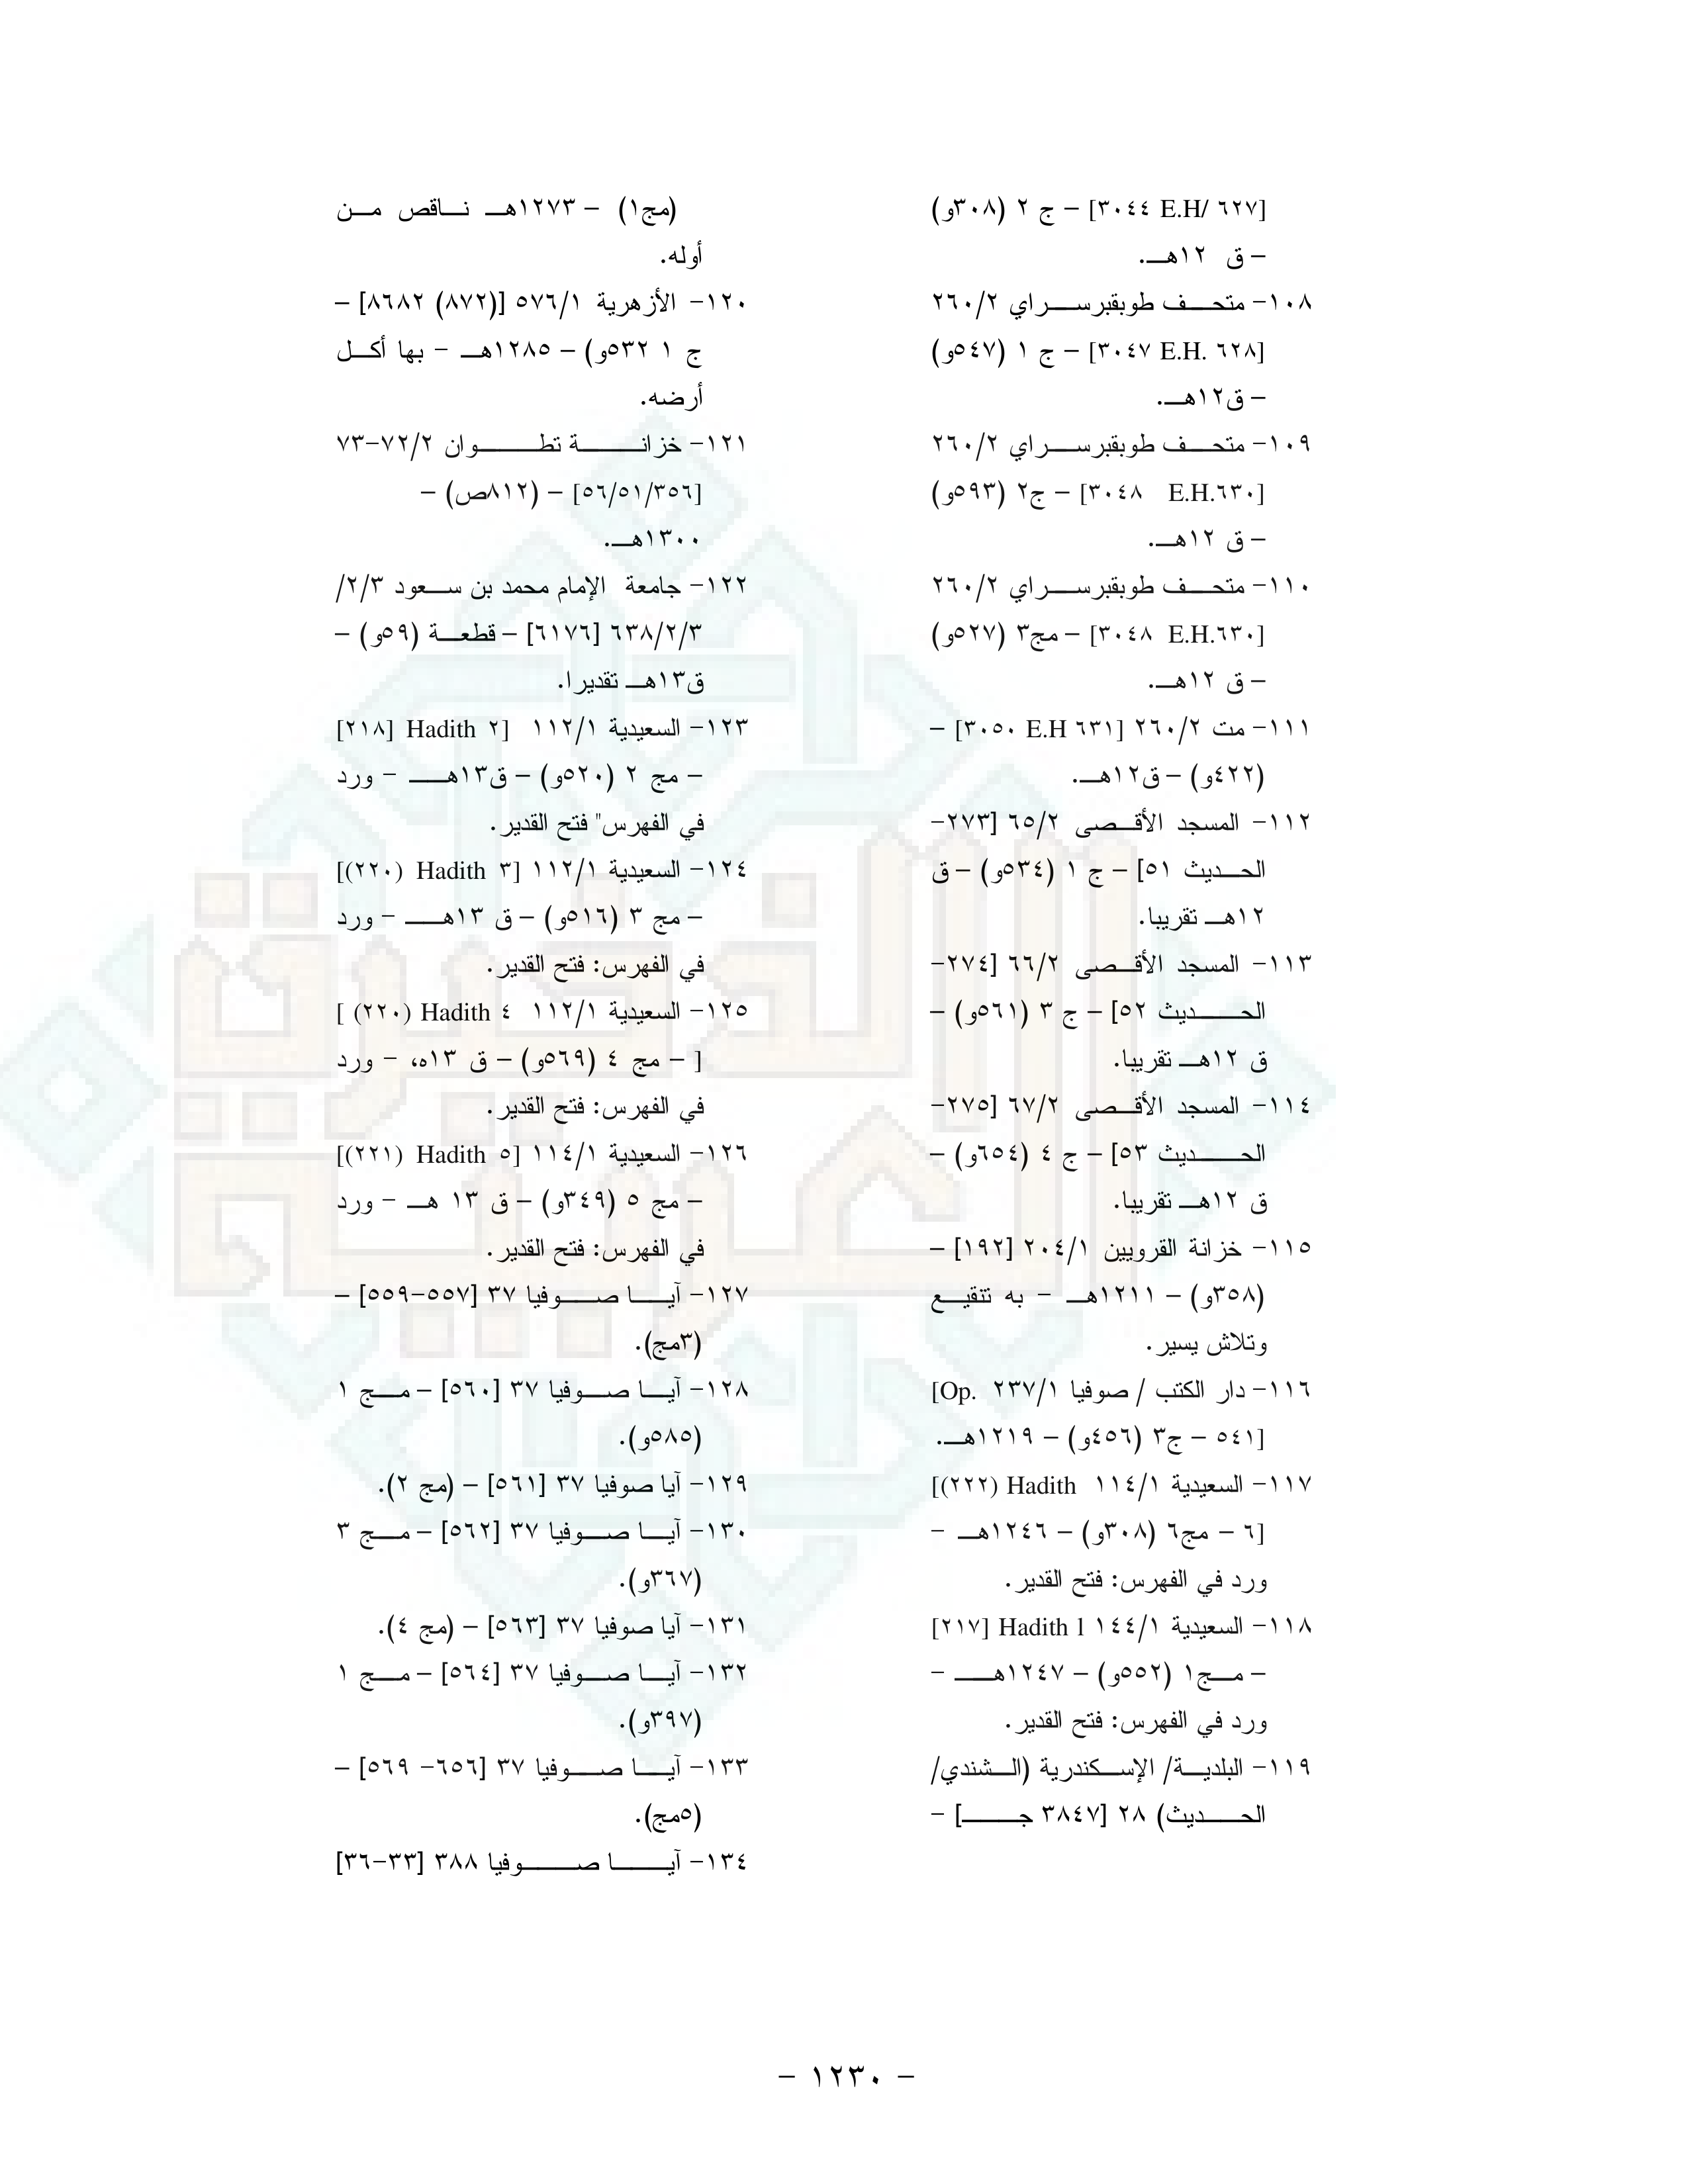 [٣٠٤٤ E.H/ ٦٢٧] – ج ٢ (٣٠٨و)
– ق ١٢هـ.
١٠٨- متحف طوبقبرسراي ٢٦٠/٢
[٣٠٤٧ E.H. ٦٢٨] – ج ١ (٥٤٧و)
– ق١٢هـ.
١٠٩- متحف طوبقبرسراي ٢٦٠/٢
[٣٠٤٨ E.H.٦٣٠] – ج٢ (٥٩٣و)
– ق ١٢هـ.
١١٠- متحف طوبقبرسراي ٢٦٠/٢
[٣٠٤٨ E.H.٦٣٠] – مج٣ (٥٢٧و)
– ق ١٢هـ.
١١١- مت ٢٦٠/٢ [٣٠٥٠ E.H ٦٣١] –
(٤٢٢و) – ق١٢هـ.
١١٢- المسجد الأقصى ٦٥/٢ [٢٧٣-
الحديث ٥١] – ج ١ (٥٣٤و) – ق
١٢هـ تقريبا.
١١٣- المسجد الأقصى ٦٦/٢ [٢٧٤-
الحديث ٥٢] – ج ٣ (٥٦١و) –
ق ١٢هـ تقريبا.
١١٤- المسجد الأقصى ٦٧/٢ [٢٧٥-
الحديث ٥٣] – ج ٤ (٦٥٤و) –
ق ١٢هـ تقريبا.
١١٥- خزانة القرويين ٢٠٤/١ [١٩٢] –
(٣٥٨و) – ١٢١١هـ - به تنقيع
وتلاش يسير.
١١٦- دار الكتب / صوفيا ٢٣٧/١ [Op.
٥٤١] – ج٣ (٤٥٦و) – ١٢١٩هـ.
١١٧- السعيدية ١١٤/١ Hadith (٢٢٢)]
٦] – مج٦ (٣٠٨و) – ١٢٤٦هـ -
ورد في الفهرس: فتح القدير.
١١٨- السعيدية ١٤٤/١ Hadith l [٢١٧]
– مج١ (٥٥٢و) – ١٢٤٧هـ -
ورد في الفهرس: فتح القدير.
١١٩- البلدية/ الإسكندرية (الشندي/
الحديث) ٢٨ [٣٨٤٧ جـ] –
(مج١) – ١٢٧٣هـ ناقص من
أوله.
١٢٠- الأزهرية ٥٧٦/١ [(٨٧٢) ٨٦٨٢] –
ج ١ ٥٣٢و) – ١٢٨٥هـ - بها أكل
أرضه.
١٢١- خزانة تطوان ٧٢/٢-٧٣
[٥٦/٥١/٣٥٦] – (٨١٢ص) –
١٣٠٠هـ.
١٢٢- جامعة الإمام محمد بن سعود ٢/٣/
٦٣٨/٢/٣ [٦١٧٦] – قطعة (٥٩و) –
ق١٣هـ تقديرا.
١٢٣- السعيدية ١١٢/١ [Hadith ٢ [٢١٨]
– مج ٢ (٥٢٠و) – ق١٣هـ - ورد
في الفهرس" فتح القدير.
١٢٤- السعيدية ١١٢/١ [Hadith ٣ (٢٢٠)]
– مج ٣ (٥١٦و) – ق ١٣هـ - ورد
في الفهرس: فتح القدير.
١٢٥- السعيدية ١١٢/١ Hadith ٤ (٢٢٠) ]
] – مج ٤ (٥٦٩و) – ق ١٣ه، - ورد
في الفهرس: فتح القدير.
١٢٦- السعيدية ١١٤/١ [Hadith ٥ (٢٢١)]
– مج ٥ (٣٤٩و) – ق ١٣ هـ - ورد
في الفهرس: فتح القدير.
١٢٧- آيا صوفيا ٣٧ [٥٥٧-٥٥٩] –
(٣مج).
١٢٨- آيا صوفيا ٣٧ [٥٦٠] – مج ١
(٥٨٥و).
١٢٩- آيا صوفيا ٣٧ [٥٦١] – (مج ٢).
١٣٠- آيا صوفيا ٣٧ [٥٦٢] – مج ٣
(٣٦٧و).
١٣١- آيا صوفيا ٣٧ [٥٦٣] – (مج ٤).
١٣٢- آيا صوفيا ٣٧ [٥٦٤] – مج ١
(٣٩٧و).
١٣٣- آيا صوفيا ٣٧ [٦٥٦- ٥٦٩] –
(٥مج).
١٣٤- آيا صوفيا ٣٨٨ [٣٣-٣٦]
- ١٢٣٠ -
الذخيرة
العربية